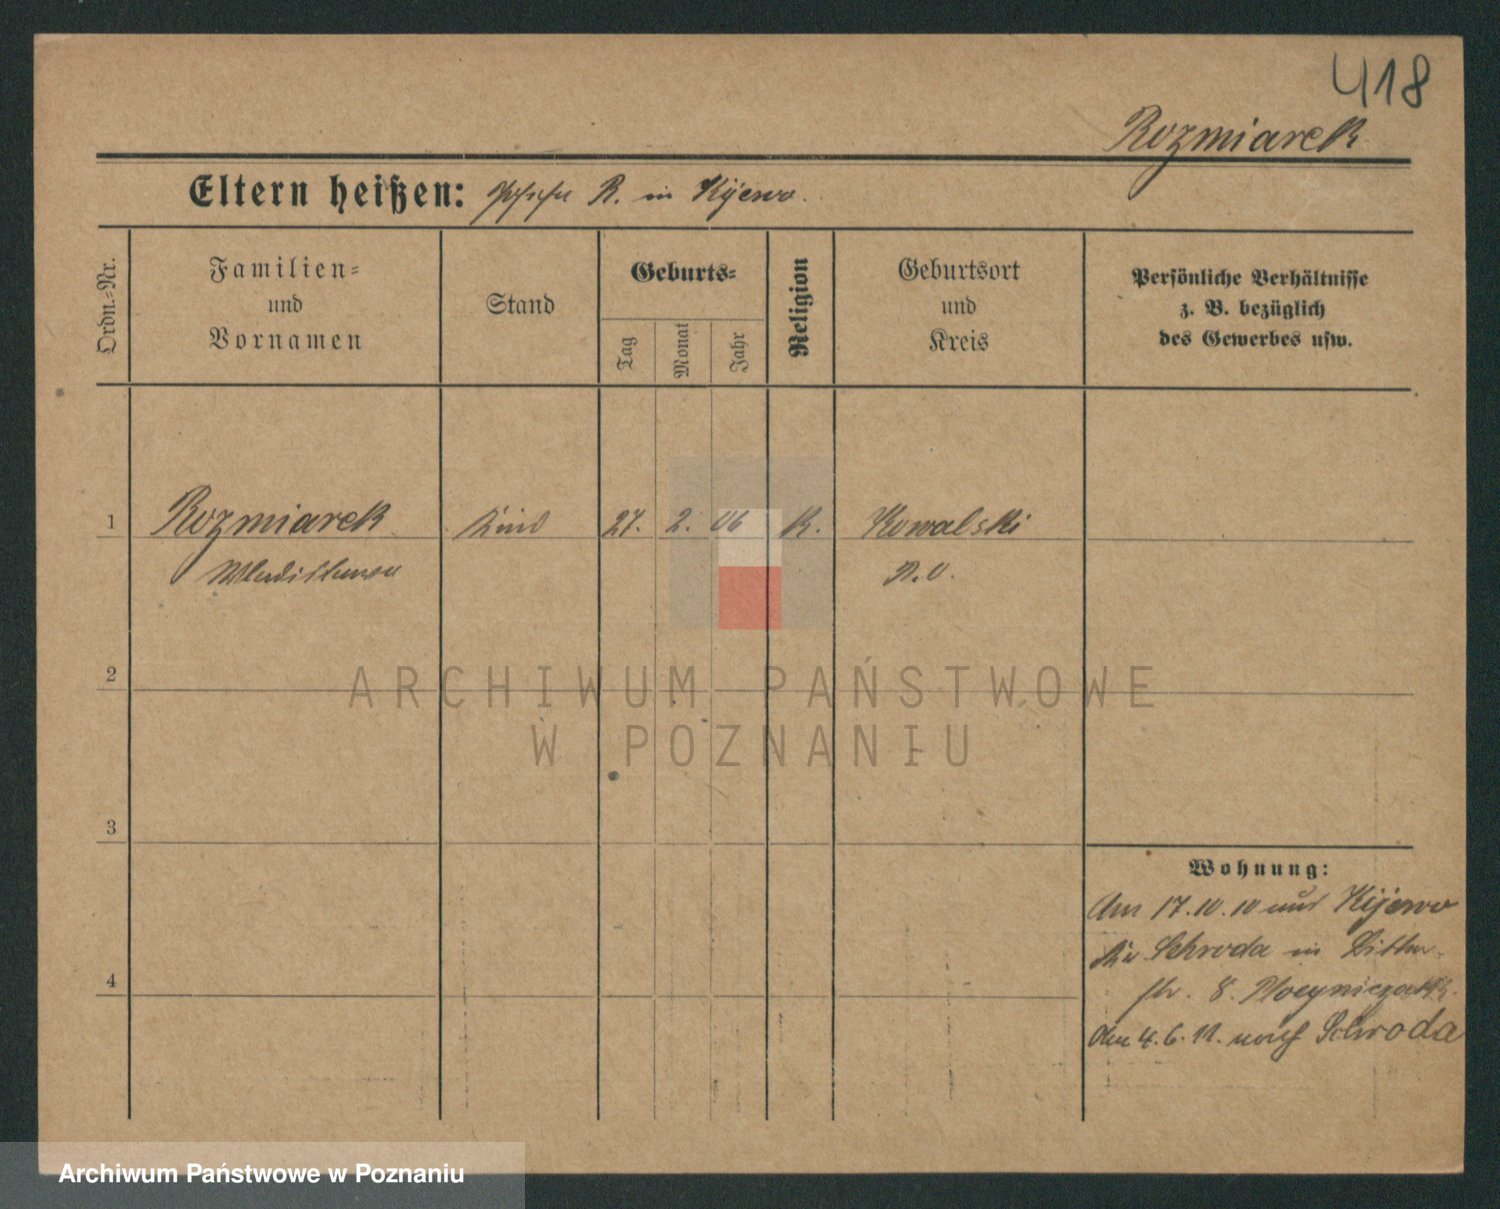 418
Rozmiarek
Eltern heißen: R. in Kijewo.
Ordn.-Nr.
Familien-
und
Vornamen
Stand
Geburts-
Tag
Monat
Jahr
Religion
Geburtsort
und
Kreis
Persönliche Verhältnisse
z. B. bezüglich
des Gewerbes usw.
1 Rozmiarek Kind 27. 2. 06 K. Kowalski
Wladislawa
2
ARCHIWUM PAŃSTWOWE
W POZNANIU
3
Wohnung:
Am 17.10.10 aus Kijewo
Schroda in
str. 8.
4
den 4.6.11. nach Schroda
Archiwum Państwowe w Poznaniu